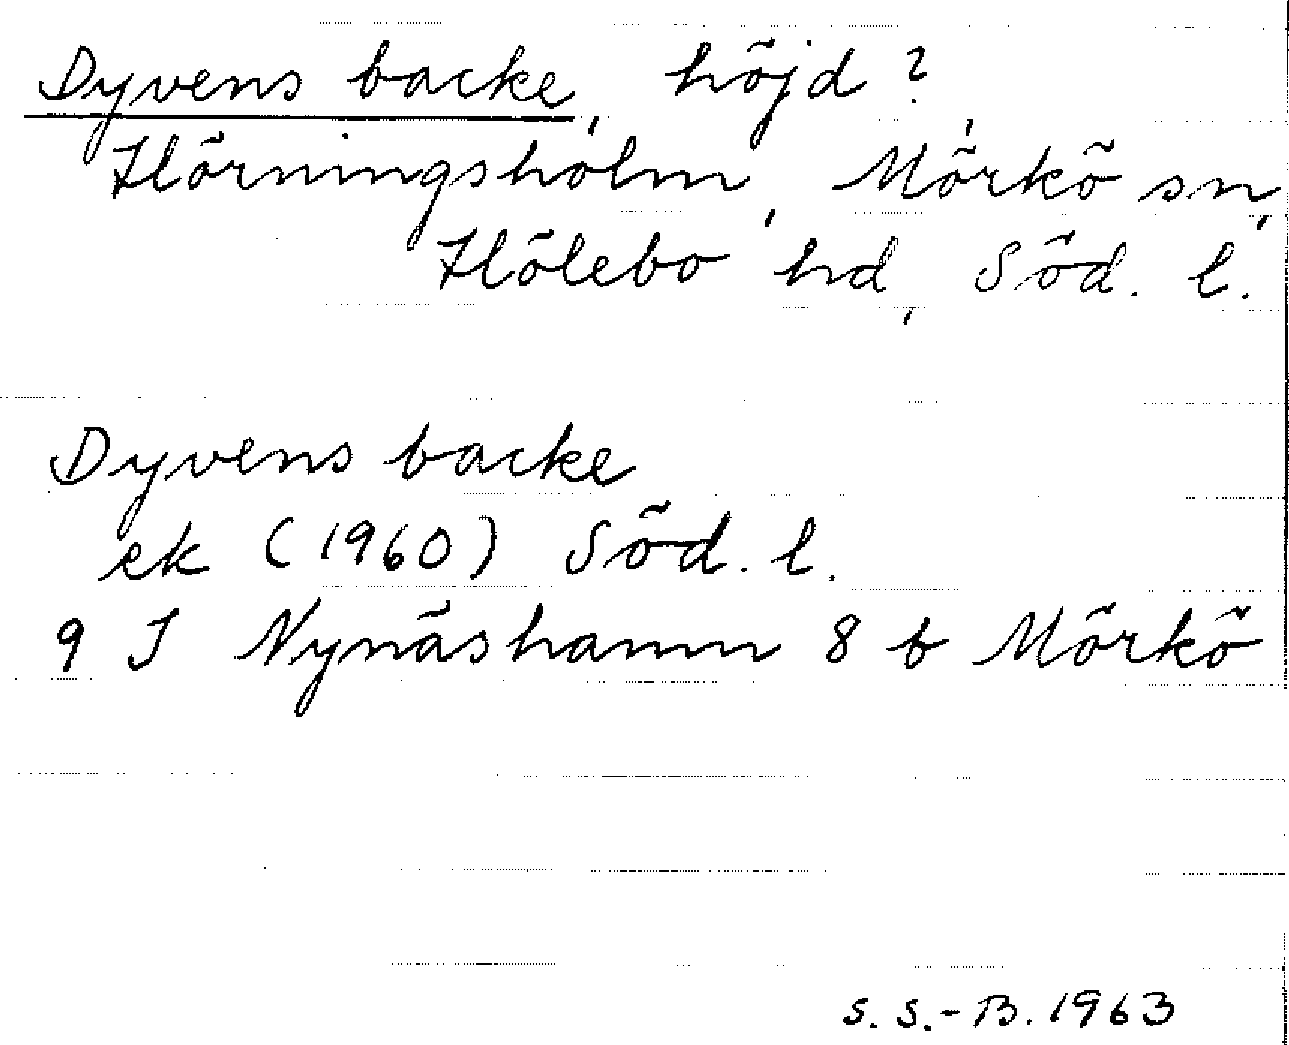 Dyvens backe, höjd?,
Hörningsholm, Mörkö sn,
Hölebo hd, Söd. l.
Dyvens backe
ek (1960) Söd. l.
9 I Nynäshamn 8 b Mörkö
S. S.-B. 1963